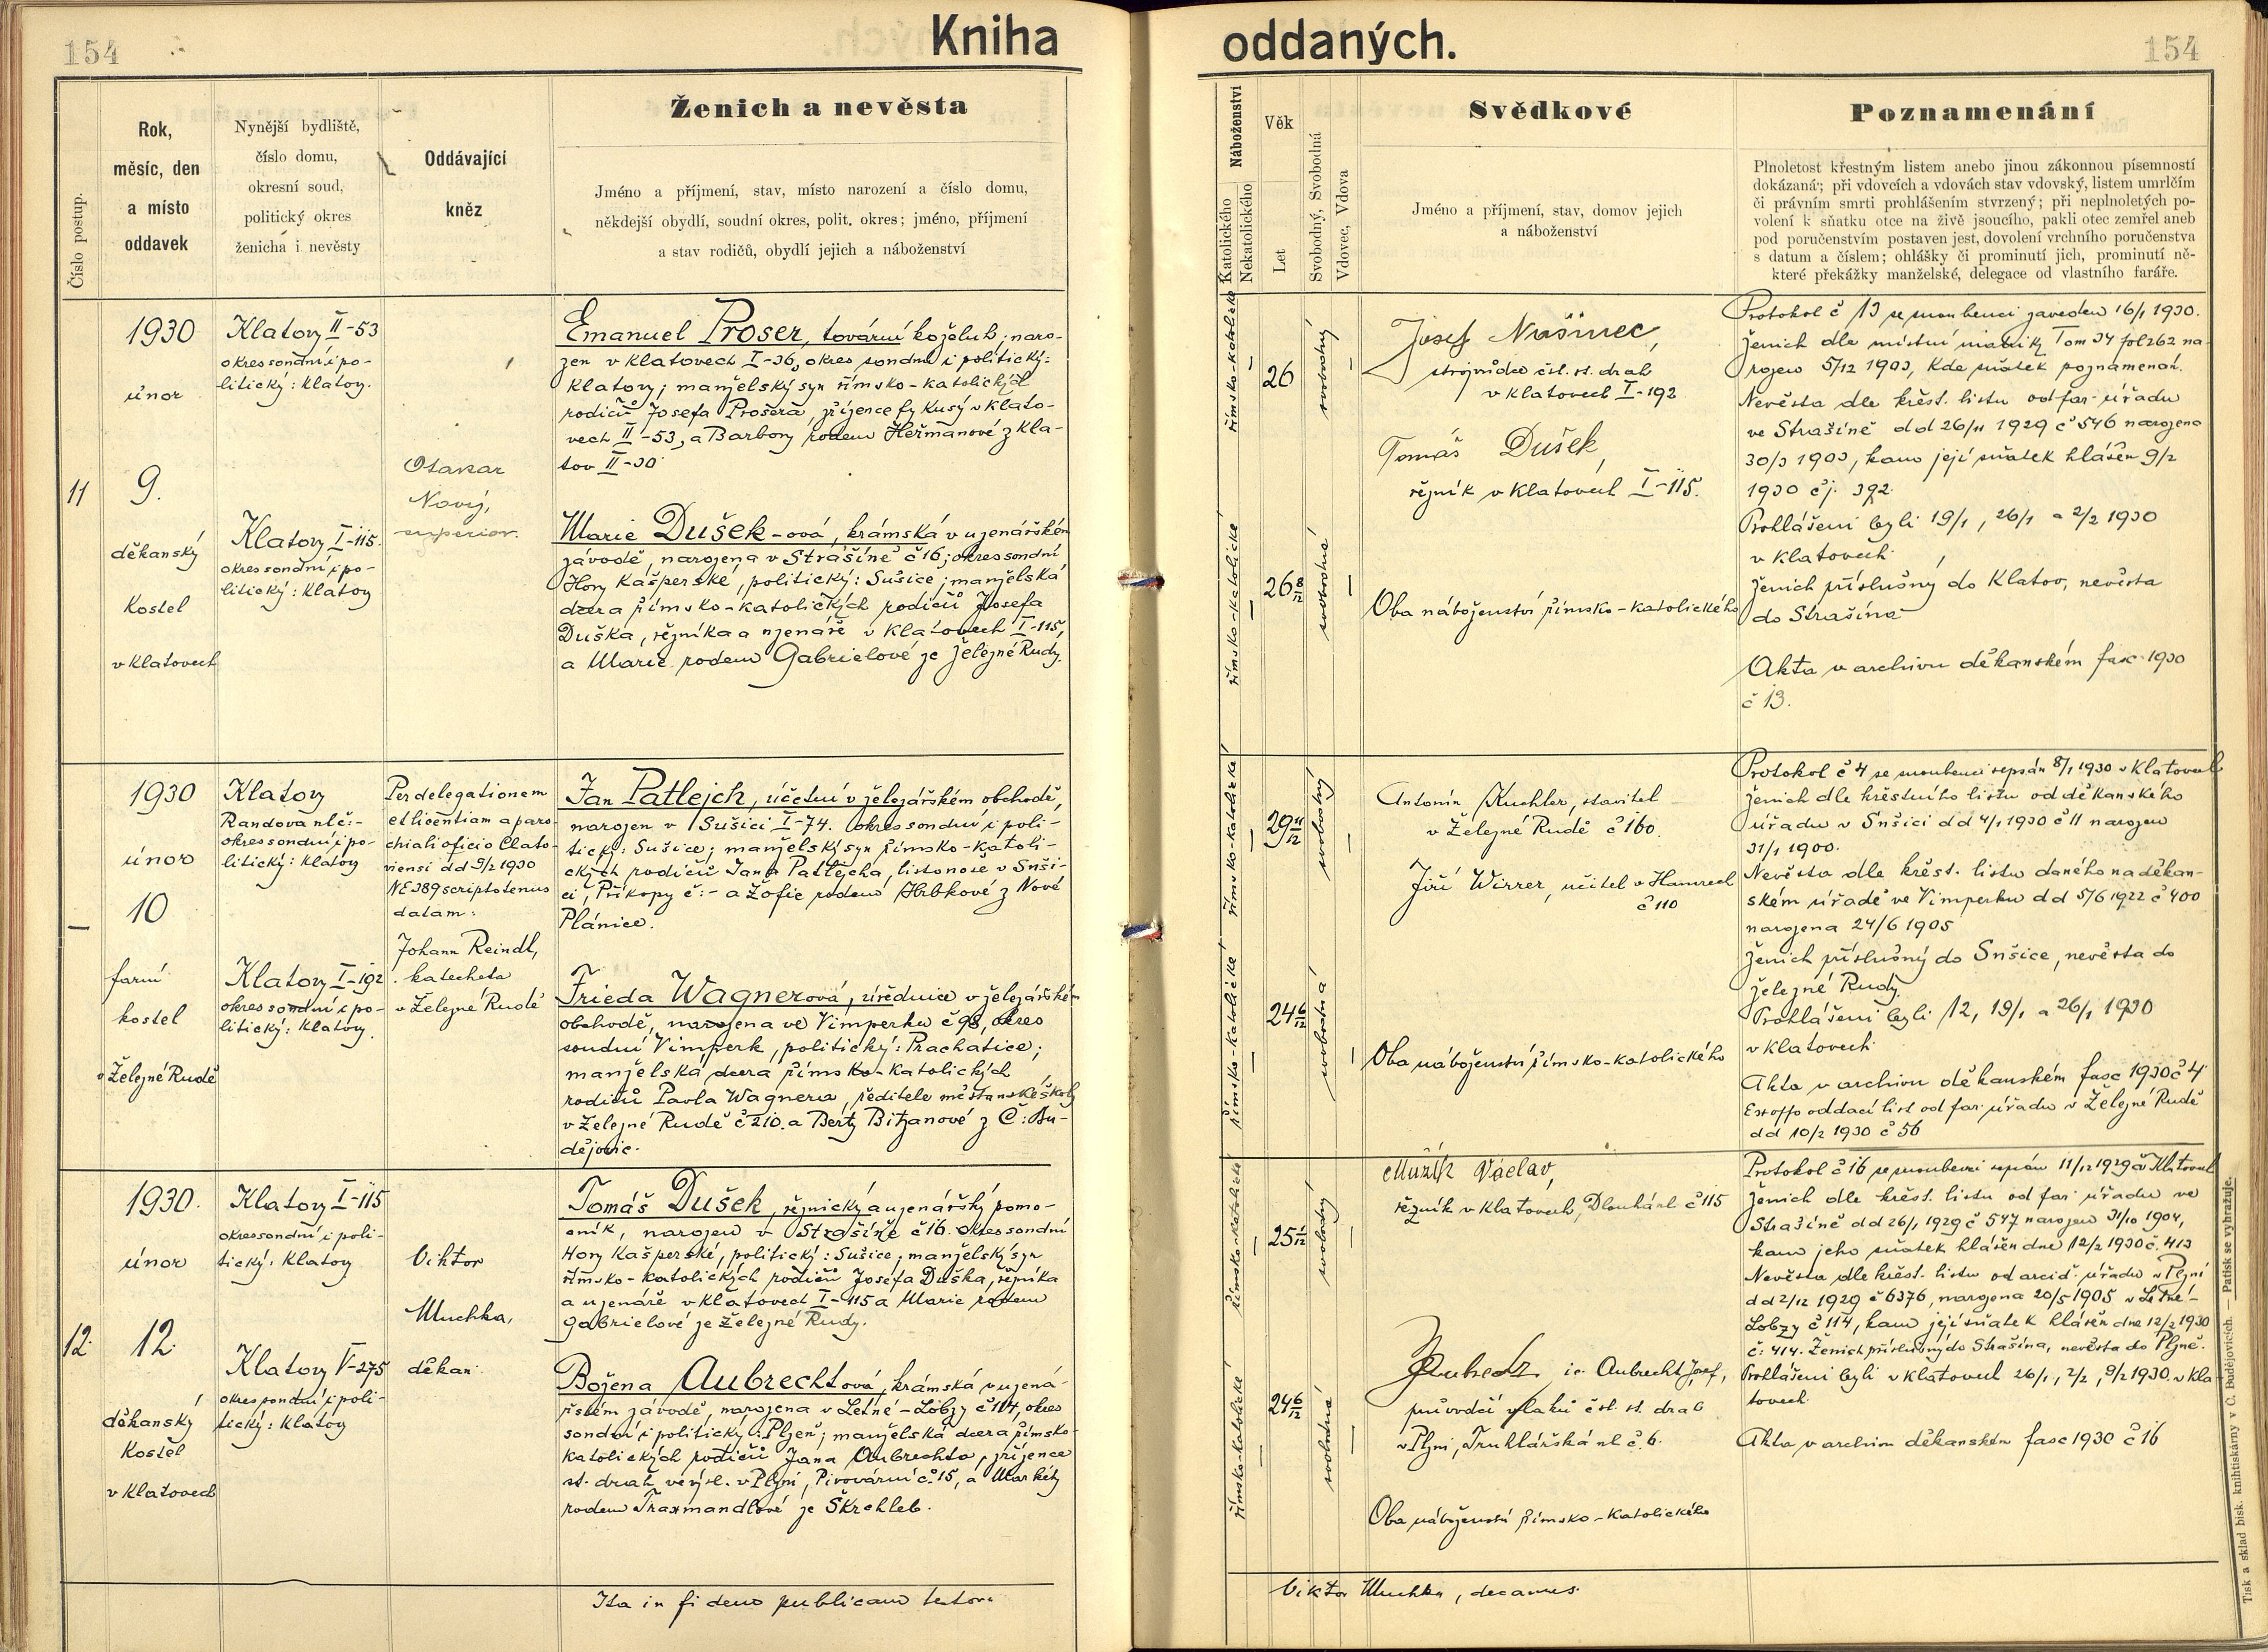 154
Kniha
oddaných.
154
Číslo postup.
Rok,
měsíc, den
a místo
oddavek
Nynější bydliště,
číslo domu,
okresní soud,
politický okres
ženicha i nevěsty
Oddávající
kněz
Ženich a nevěsta
Jméno a příjmení, stav, místo narození a číslo domu,
někdejší obydlí, soudní okres, polit. okres; jméno, příjmení
a stav rodičů, obydlí jejich a náboženství
Náboženství
Katolického
Nekatolického
Věk
Let
Svobodný, Svobodná
Vdovec, Vdova
Svědkové
Jméno a příjmení, stav, domov jejich
a náboženství
Poznamenání
Plnoletost křestným listem anebo jinou zákonnou písemností
dokázaná; při vdovcích a vdovách stav vdovský, listem umrlčím
či právním smrti prohlášením stvrzený; při neplnoletých po-
volení k sňatku otce na živě jsoucího, pakli otec zemřel aneb
pod poručenstvím postaven jest, dovolení vrchního poručenstva
s datum a číslem; ohlášky či prominutí jich, prominutí ně-
které překážky manželské, delegace od vlastního faráře.
11
1930
únor
9.
děkanský
kostel
v Klatovech
Klatovy II-53
okres soudní i po-
litický: Klatovy.
Klatovy I-115.
okres soudní i po-
litický: Klatovy
Otakar
Nový,
superior.
Emanuel Proser, tovární koželuh; naro-
zen v Klatovech I-36, okres soudní i politický:
Klatovy; manželský syn římsko-katolických
rodičů Josefa Prosera, zřízence fy Kusý v Klato-
vech II-53, a Barbory rodem Heřmanové z Kla-
tov II-30
Marie Dušek-ová, krámská v uzenářském
závodě, narozena v Strašíně č 16; okres soudní
Hory Kašperské, politický: Sušice; manželská
dcera římsko-katolických rodičů Josefa
Duška, řezníka a uzenáře v Klatovech I-115,
a Marie rodem Gabrielové ze Železné Rudy.
římsko-katolické
26
svobodný
římsko-katolické
26 8/12
svobodná
Josef Nosinec,
strojvůdce čsl. st. drah
v Klatovech I-192
Tomáš Dušek,
řezník v Klatovech I-115.
Oba náboženství římsko-katolického
Protokol č 13 se snoubenci zaveden 16/1 1930.
Ženich dle místní matriky Tom 34 fol 262 na-
rozen 5/12 1903, kde sňatek poznamenán.
Nevěsta dle křest. listu od far. úřadu
ve Strašíně dd 26/11 1929 č 546 narozena
30/3 1903, kam její sňatek hlášen 9/2
1930 čj. 392
Prohlášeni byli 19/1, 26/1 a 2/2 1930
v Klatovech
Ženich příslušný do Klatov, nevěsta
do Strašína
Akta v archivu děkanském fasc 1930
č 13.
—
1930
únor
10
farní
kostel
v Železné Rudě
Klatovy
Randova ul č:-
okres soudní i po-
litický: Klatovy
Klatovy I-192.
okres soudní i po-
litický: Klatovy.
Per delegationem
et licentiam a paro-
chiali oficio Clato-
viensi dd 9/2 1930
NE 389 scriptotenus
datam:
Johann Reindl,
katecheta
v Železné Rudě
Jan Patlejch, účetní v železářském obchodě,
narozen v Sušici I-74. okres soudní i poli-
tický: Sušice; manželský syn římsko-katoli-
ckých rodičů Jana Patlejcha, listonoše v Suši-
ci, Příkopy č:- a Žofie rodem Hrbkové z Nové
Plánice.
Frieda Wagnerová, úřednice v železářském
obchodě, narozena ve Vimperku č 98, okres
soudní Vimperk, politický: Prachatice;
manželská dcera římsko-katolických
rodičů Pavla Wagnera, ředitele měšťanské školy
v Železné Rudě č 210. a Berty Bitzanové z Č: Bu-
dějovic.
římsko-katolické
29 11/12
svobodný
římsko-katolické
24 6/12
svobodná
Antonín Kuchler, stavitel
v Železné Rudě č 160.
Jiří Wirrer, učitel v Hamrech
č 110
Oba náboženství římsko-katolického
Protokol č 4 se snoubenci sepsán 8/1 1930 v Klatovech
Ženich dle křestního listu od děkanského
úřadu v Sušici dd 4/1 1930 č 11 narozen
31/1 1900.
Nevěsta dle křest. listu daného na děkan-
ském úřadě ve Vimperku dd 5/6 1922 č 400
narozena 24/6 1905
Ženich příslušný do Sušice, nevěsta do
Železné Rudy.
Prohlášeni byli 12, 19/1 a 26/1 1930
v Klatovech
Akta v archivu děkanském fasc 1930 č 4
Ex offo oddací list od far. úřadu v Železné Rudě
dd 10/2 1930 č 56
12.
1930.
únor
12.
děkanský
kostel
v Klatovech
Klatovy I-115
okres soudní i poli-
tický: Klatovy
Klatovy V-275
okres soudní i poli-
tický: Klatovy
Viktor
Muchka,
děkan.
Tomáš Dušek, řeznický a uzenářský pomo-
cník, narozen v Strašíně č 16. okres soudní
Hory Kašperské, politický: Sušice; manželský syn
římsko-katolických rodičů Josefa Duška, řezníka
a uzenáře v Klatovech I-115 a Marie rodem
Gabrielové ze Železné Rudy.
Božena Aubrechtová, krámská v uzená-
řském závodě, narozena v Letné-Lobzy č 114, okres
soudní i politický: Plzeň; manželská dcera římsko-
katolických rodičů Jana Aubrechta, zřízence
st. drah ve výsl. v Plzni, Pivovární č. 15, a Markéty
rodem Traxmandlové ze Skrchleb.
římsko-katolické
25 1/12
svobodný
římsko-katolické
24 6/12
svobodná
Mužík Václav,
řezník v Klatovech, Dlouhá ul č 115
ic. Aubrecht Josef,
průvodčí vlaků čsl. st. drah
v Plzni, Truhlářská ul č. 6.
Oba náboženství římsko-katolického
Protokol č 16 se snoubenci sepsán 11/12 1929 v Klatovech
Ženich dle křest. listu od far úřadu ve
Strašíně dd 26/1 1929 č 547 narozen 31/10 1904,
kam jeho sňatek hlášen dne 12/2 1930 č. 413
Nevěsta dle křest. listu od arcid. úřadu v Plzni
dd 2/12 1929 č 6376, narozena 20/5 1905 v Letné-
Lobzy č 114, kam její sňatek hlášen dne 12/2 1930
č: 414. Ženich příslušný do Strašína, nevěsta do Plzně.
Prohlášeni byli v Klatovech 26/1, 2/2, 9/2 1930. v Kla-
tovech
Akta v archivu děkanském fasc 1930 č 16
Ita in fidem publicam testor:
Viktor Muchka, decanus.
Tisk a sklad bisk. knihtiskárny v Č. Budějovicích. — Patisk se vyhražuje.